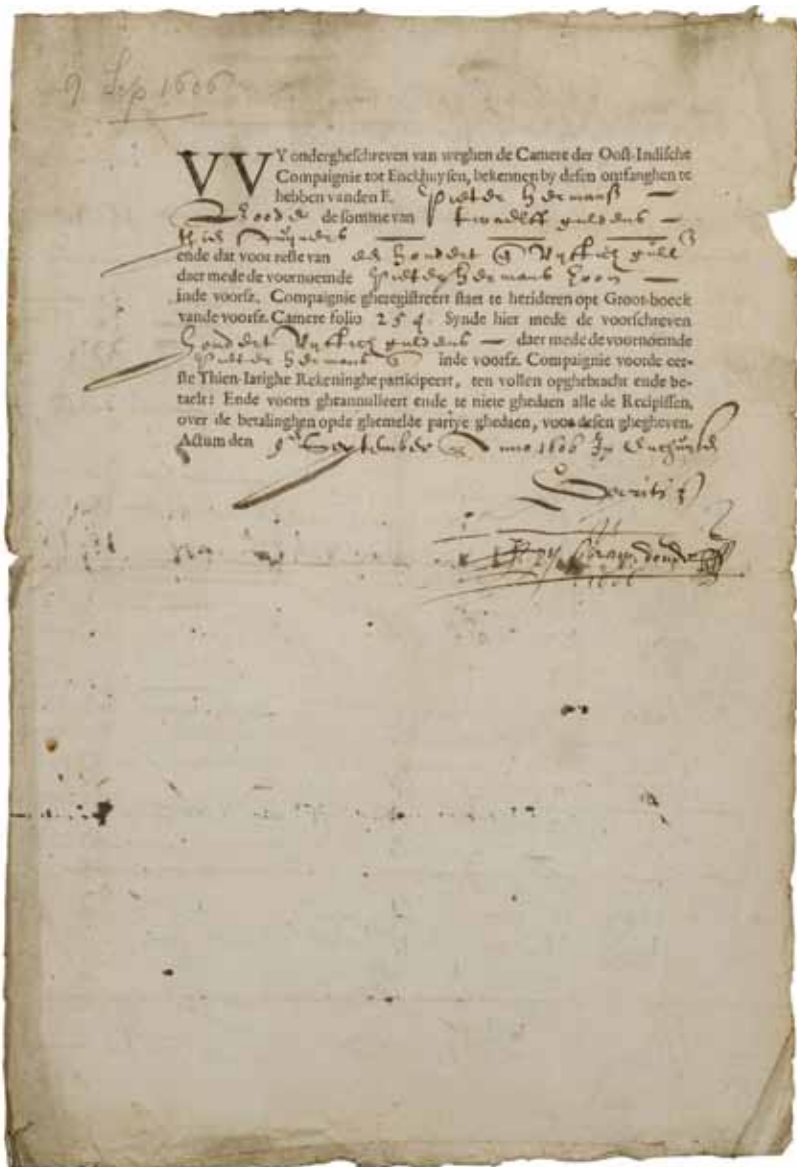 9 Sep 1606
VVY ondergheschreven van weghen de Camere der Oost-Indische
Compaignie tot Enckhuysen, bekennen by desen ontfanghen te
hebben vanden E. Pieter Hermansz —
de somme van twaelff guldens —
thien stuyvers —
ende dat voor reste van een hondert vyftich gull
daer mede de voornoemde Pieter Hermansz —
inde voorsz. Compaignie gheregistreert staet te herideren opt Groot-boeck
vande voorsz. Camere folio 254. Synde hier mede de voorschreven
hondert vyftich guldens — daer mede de voornoemde
Pieter Hermansz inde voorsz. Compaignie voorde eer-
ste Thien-Iarighe Rekeninghe participeert, ten vollen opghebracht ende be-
taelt: Ende voorts gheannulleert ende te niete ghedaen alle de Recipissen,
over de betalinghen opde ghemelde partye ghedaen, voor desen ghegheven.
Actum den 9 September 1606 In